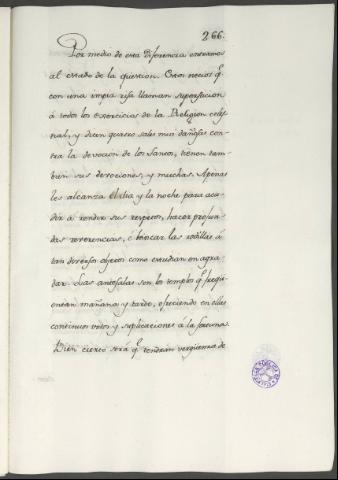 266.
Por medio de esta diferencia entramos
al estado de la question. Estos necios q.
con una impia risa llaman supersticion
á todos los exercicios de la Religion celes-
tial, y dicen quatro sales mui dañosas con-
tra la devocion de los Santos, tienen tam-
bien sus devociones, y muchas. Apenas
les alcanza el dia y la noche para acu-
dir a rendir sus respetos, hacer profun-
das reverencias, é hincar las rodillas á
tan diversos objetos como estudian en agra-
dar. Las antesalas son los templos q. frequ-
entan mañana y tarde, ofreciendo en ellas
continuos votos y suplicaciones á la fortuna.
Bien cierto será q. tendran verguenza de